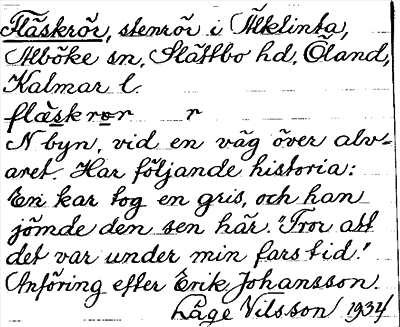 Fläskrör, stenrör i Älklinta,
Alböke sn, Slättbo hd, Öland,
Kalmar l.
flæskrør r
N byn, vid en väg över alv-
aret. Har följande historia:
En kar tog en gris, och han
jömde den sen här. "Tror att
det var under min fars tid."
Anföring efter Erik Johansson.
Låge Nilsson 1934